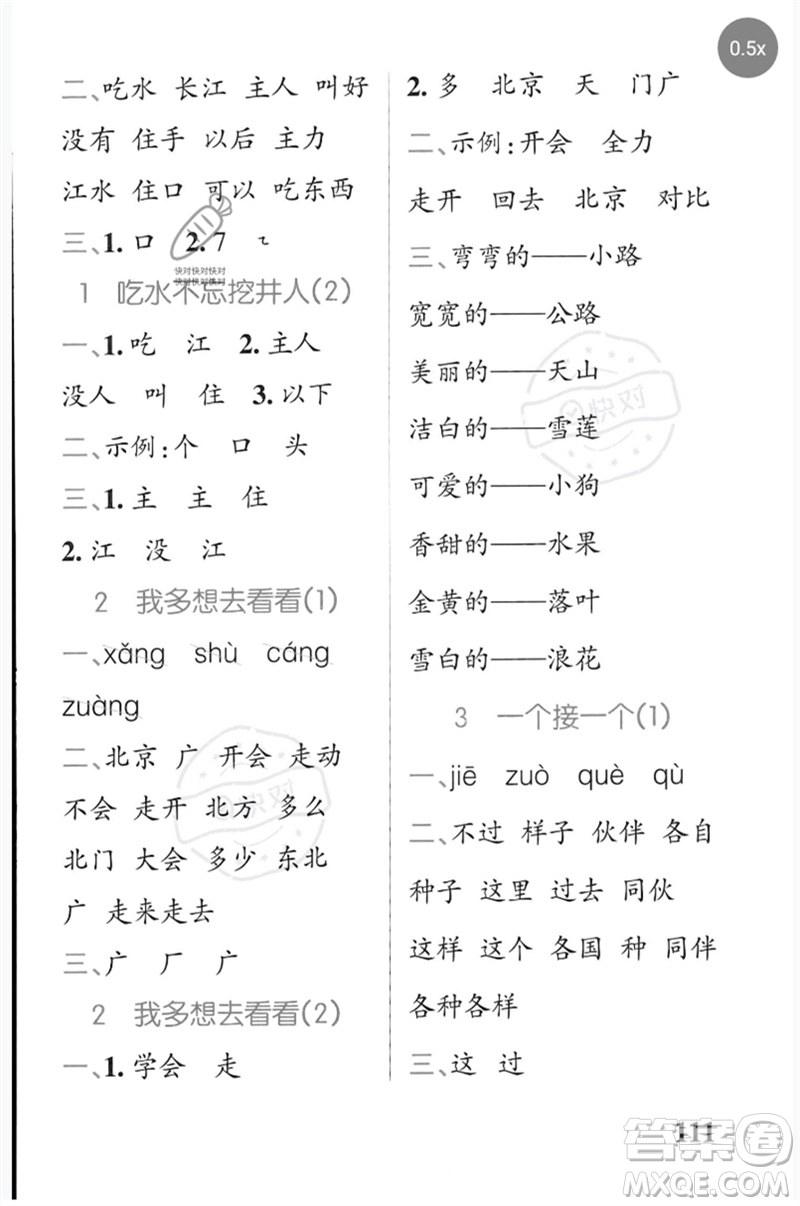 0.5x
二、吃水 长江 主人 叫好
没有 住手 以后 主力
江水 住口 可以 吃东西
三、1. 口 2. 7 ㄟ
快对快对快对
快对快对快对
1 吃水不忘挖井人(2)
一、1. 吃 江 2. 主人
没人 叫 住 3. 以下
二、示例:个 口 头
三、1. 主 主 住
2. 江 没 江
2 我多想去看看(1)
一、xǎng shù cáng
zuàng
二、北京 广 开会 走动
不会 走开 北方 多么
北门 大会 多少 东北
广 走来走去
三、广 厂 广
2 我多想去看看(2)
一、1. 学会 走
2. 多 北京 天 门广
二、示例:开会 全力
走开 回去 北京 对比
三、弯弯的——小路
宽宽的——公路
美丽的——天山
洁白的——雪莲
可爱的——小狗
香甜的——水果
金黄的——落叶
雪白的——浪花
3 一个接一个(1)
一、jiē zuò què qù
二、不过 样子 伙伴 各自
种子 这里 过去 同伙
这样 这个 各国 种 同伴
各种各样
三、这 过
111
快对
快对
答案圈
MXQE.COM